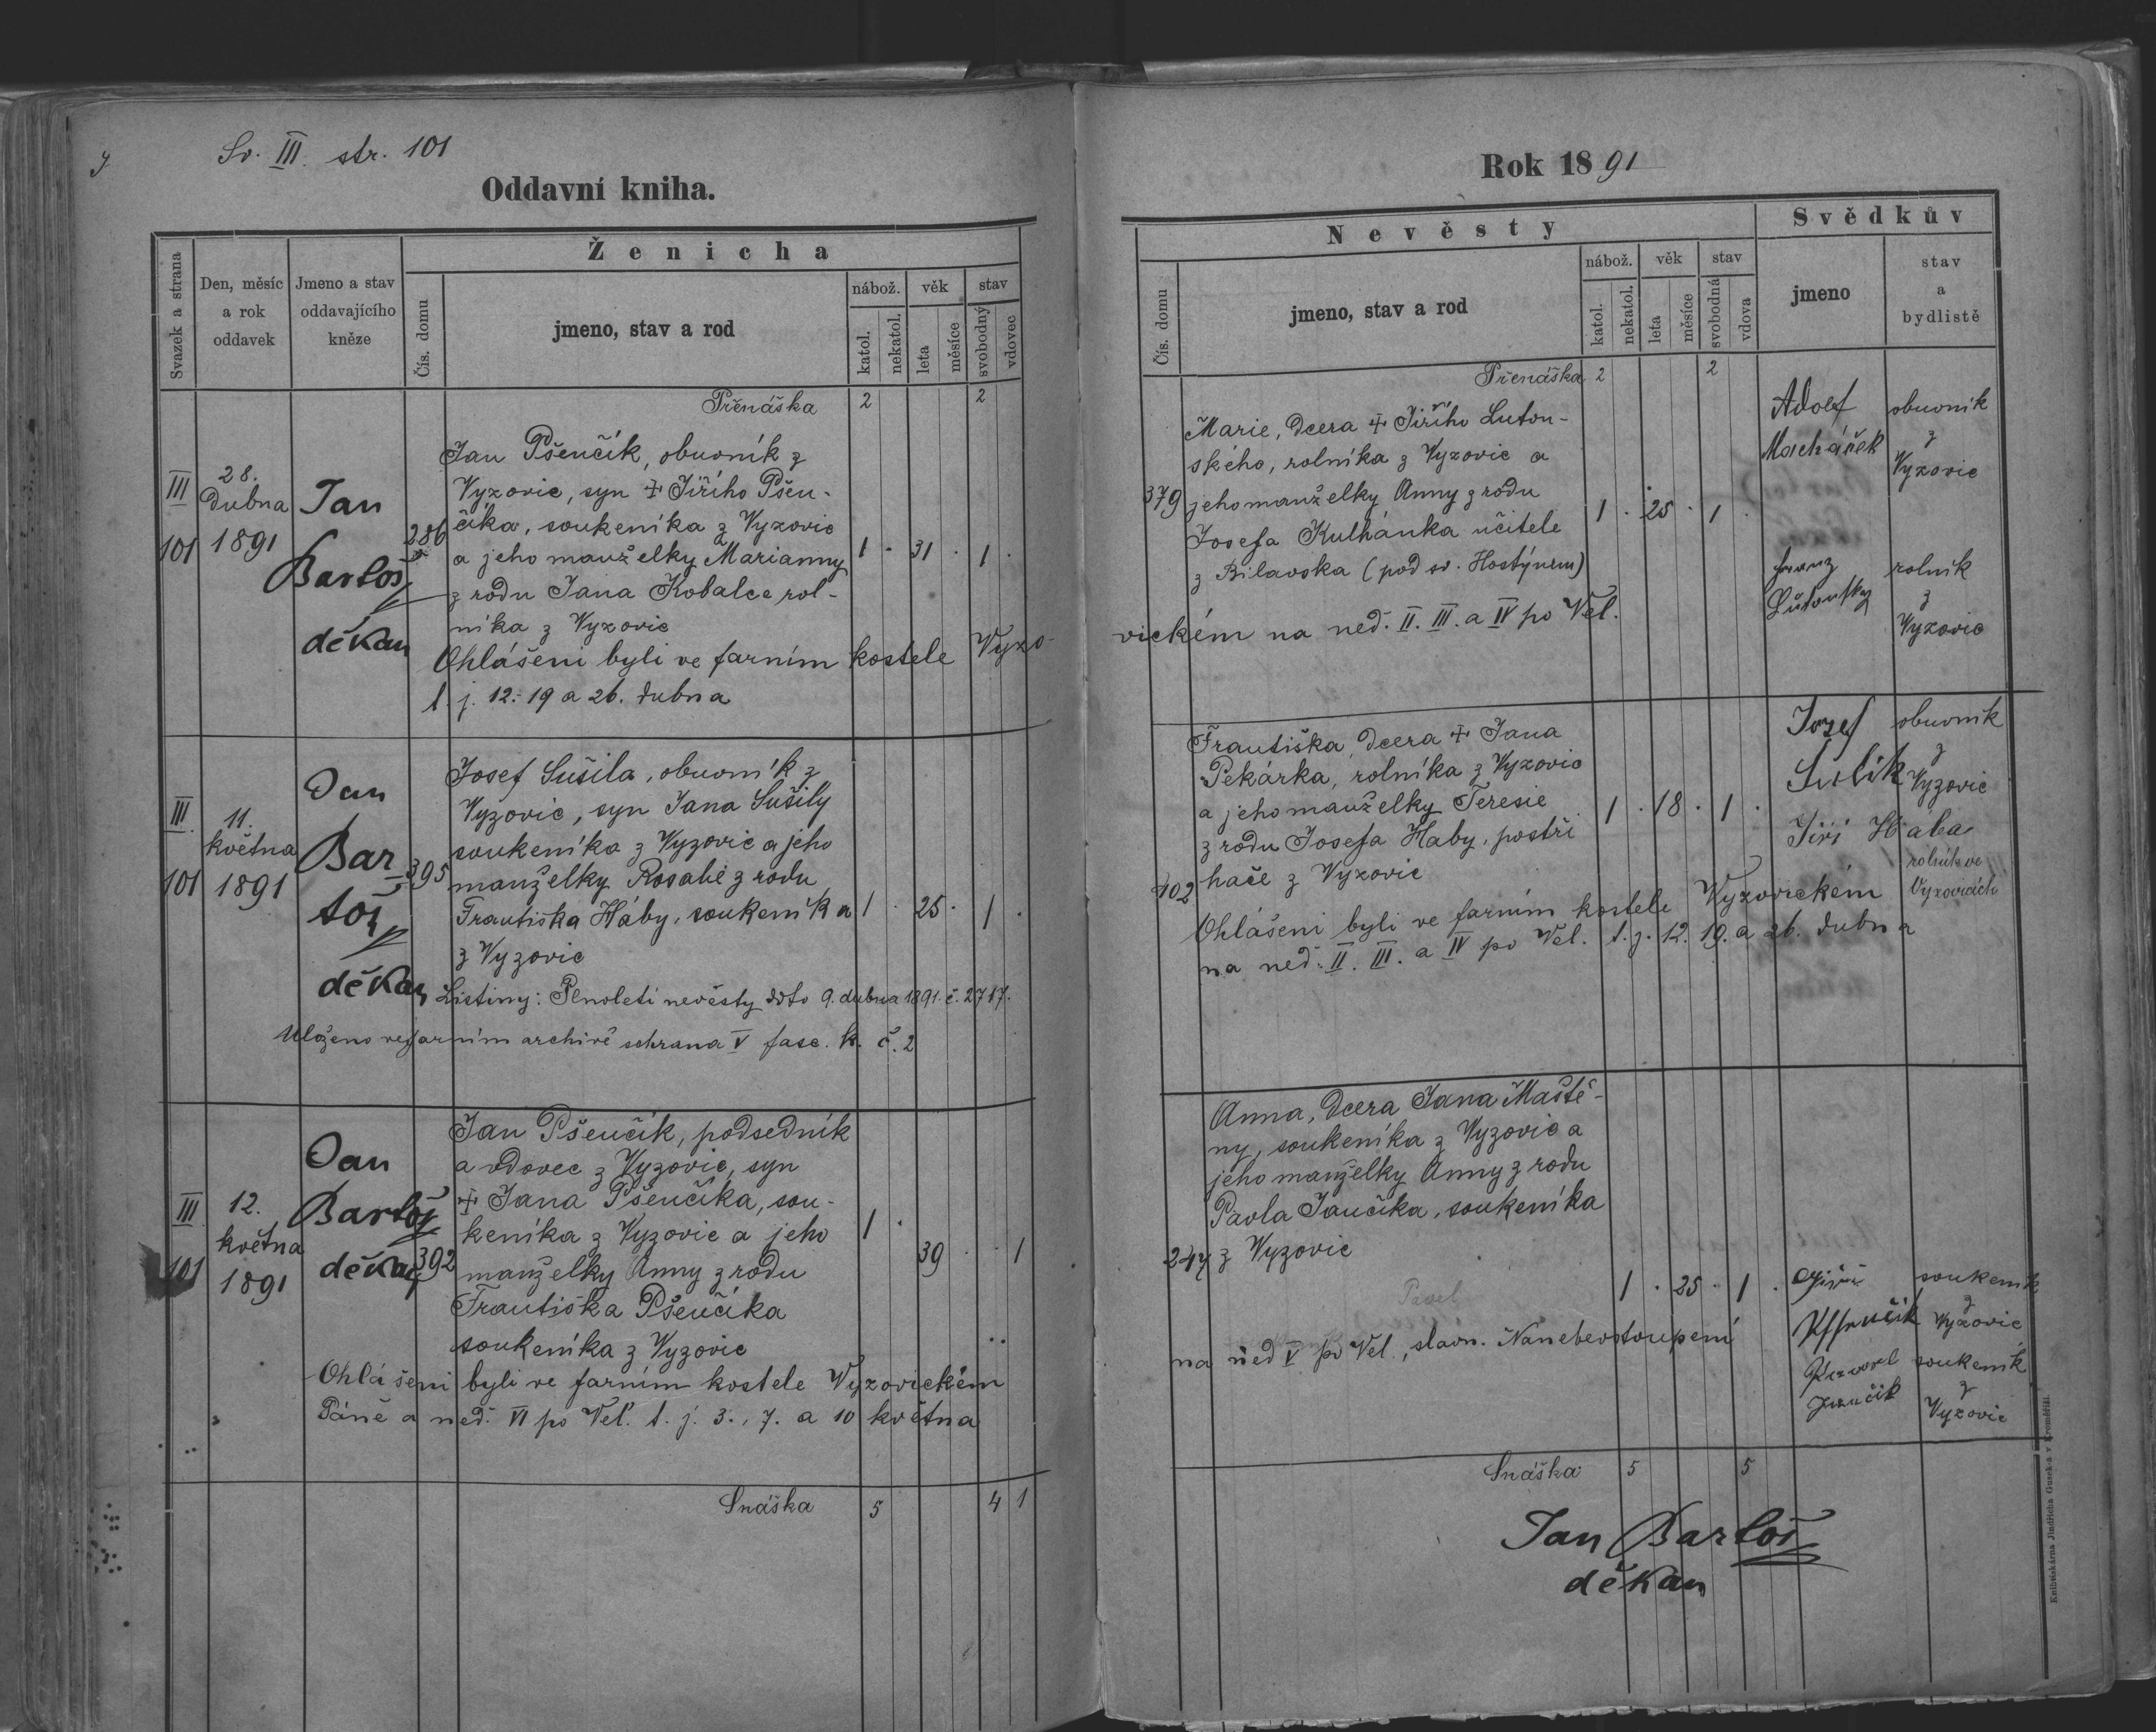 Sv. III. str. 101
Oddavní kniha.
Svazek a strana
Den, měsíc
a rok
oddavek
Jmeno a stav
oddavajícího
kněze
Ženicha
Čís. domu
jmeno, stav a rod
nábož.
věk
stav
katol.
nekatol.
leta
měsíce
svobodný
vdovec
Přenáška 2 2
III
101
28.
dubna
1891
Jan
Bartoš
děkan
286
Jan Pšenčík, obuvník z
Vyzovic, syn + Jiřího Pšen-
číka, soukeníka z Vyzovic
a jeho manželky Marianny
z rodu Jana Kobalce rol-
níka z Vyzovic
1 · 31 · 1 ·
Ohlášeni byli ve farním kostele Vyzo-
t. j. 12. 19 a 26. dubna
III.
101
11.
května
1891
Jan
Bar-
toš
děkan
395
Josef Sušila, obuvník z
Vyzovic, syn Jana Sušily
soukeníka z Vyzovic a jeho
manželky Rosalie z rodu
Františka Háby, soukeníka
z Vyzovic
1 · 25 · 1 ·
Listiny: Plnoletí nevěsty ddto 9. dubna 1891. č. 2717.
Uloženo ve farním archivě schrana V fasc. k. č. 2
III
101
12.
května
1891
Jan
Bartoš
děkan
392
Jan Pšenčík, podsedník
a vdovec z Vyzovic, syn
+ Jana Pšenčíka, sou-
keníka z Vyzovic a jeho
manželky Anny z rodu
Františka Pšenčíka
soukeníka z Vyzovic
1 · 39 · · 1
Ohlášeni byli ve farním kostele Vyzovickém
Páně a ned. VI po Vel. t. j. 3., 7. a 10 května
Snáška 5 4 1
Rok 1891
Nevěsty
Svědkův
Čís. domu
jmeno, stav a rod
nábož.
věk
stav
katol.
nekatol.
leta
měsíce
svobodná
vdova
jmeno
stav
a
bydlistě
Přenáška 2 2
379
Marie, dcera + Jiřího Luton-
ského, rolníka z Vyzovic a
jeho manželky Anny z rodu
Josefa Kulhánka učitele
z Bilavska (pod sv. Hostýnem)
1 · 25 · 1 ·
vickém na ned. II. III. a IV po Vel.
Adolf
Macháček
obuvník
z
Vyzovic
Franz
Lutonsky
rolník
z
Vyzovic
402
Františka, dcera + Jana
Pekárka, rolníka z Vyzovic
a jeho manželky Teresie
z rodu Josefa Haby, postři
hače z Vyzovic
1 · 18 · 1 ·
Ohlášeni byli ve farním kostele Vyzovickém
na ned. II. III. a IV po Vel. t. j. 12. 19. a 26. dubna
Josef
obuvník
z
Vyzovic
Jiří Hába
rolník ve
Vyzovicích
247
Anna, dcera Jana Maště-
ny, soukeníka z Vyzovic a
jeho manželky Anny z rodu
Pavla Jančíka, soukeníka
z Vyzovic
Pavel
1 · 25 · 1 ·
na ned V po Vel., slavn. Nanebevstoupení
Jiří
soukeník
z
Vyzovic
Pavel
Jančik
soukeník
z
Vyzovic
Snáška 5 5
Jan Bartoš
děkan